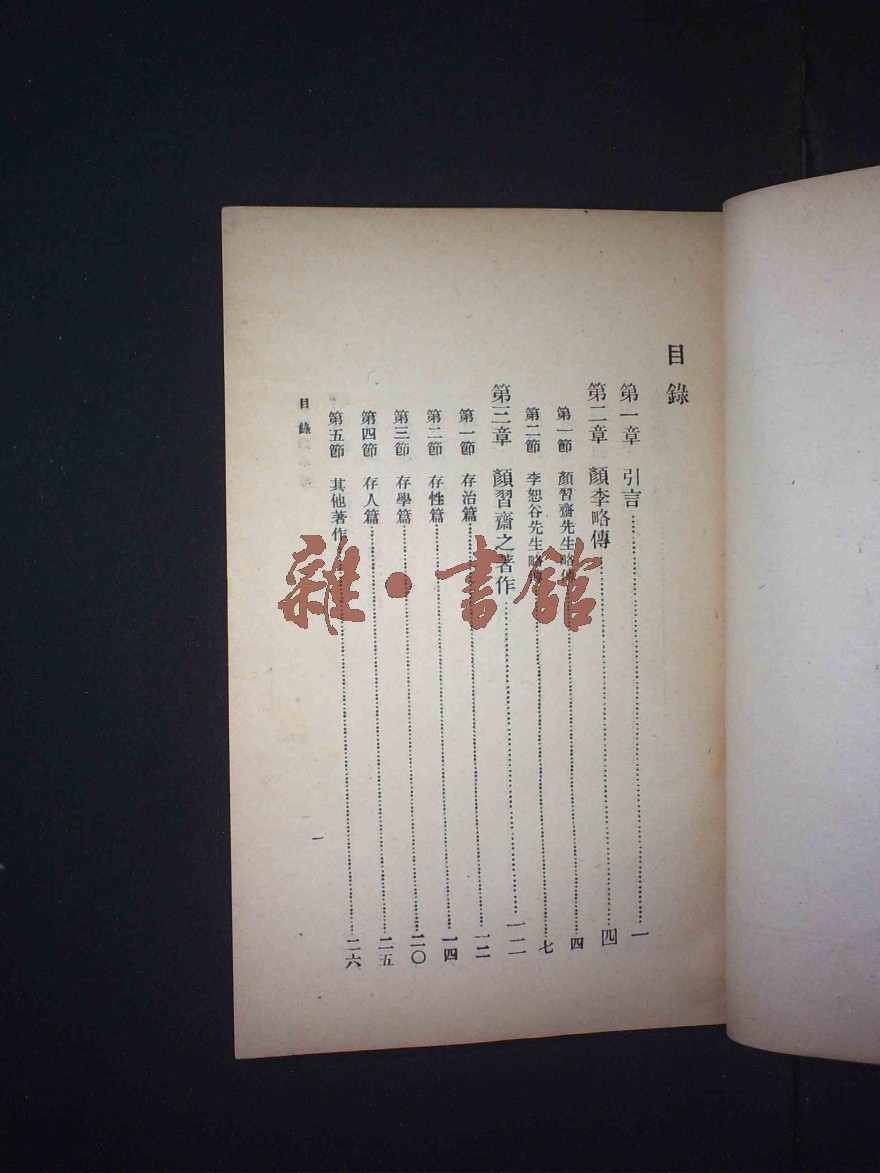 目錄
第一章 引言……一
第二章 顏李略傳……四
第一節 顏習齋先生略傳……四
第二節 李恕谷先生略傳……七
第三章 顏習齋之著作……一二
第一節 存治篇……一二
第二節 存性篇……一四
第三節 存學篇……二〇
第四節 存人篇……二五
第五節 其他著作……二六
目錄
一
雜·書館